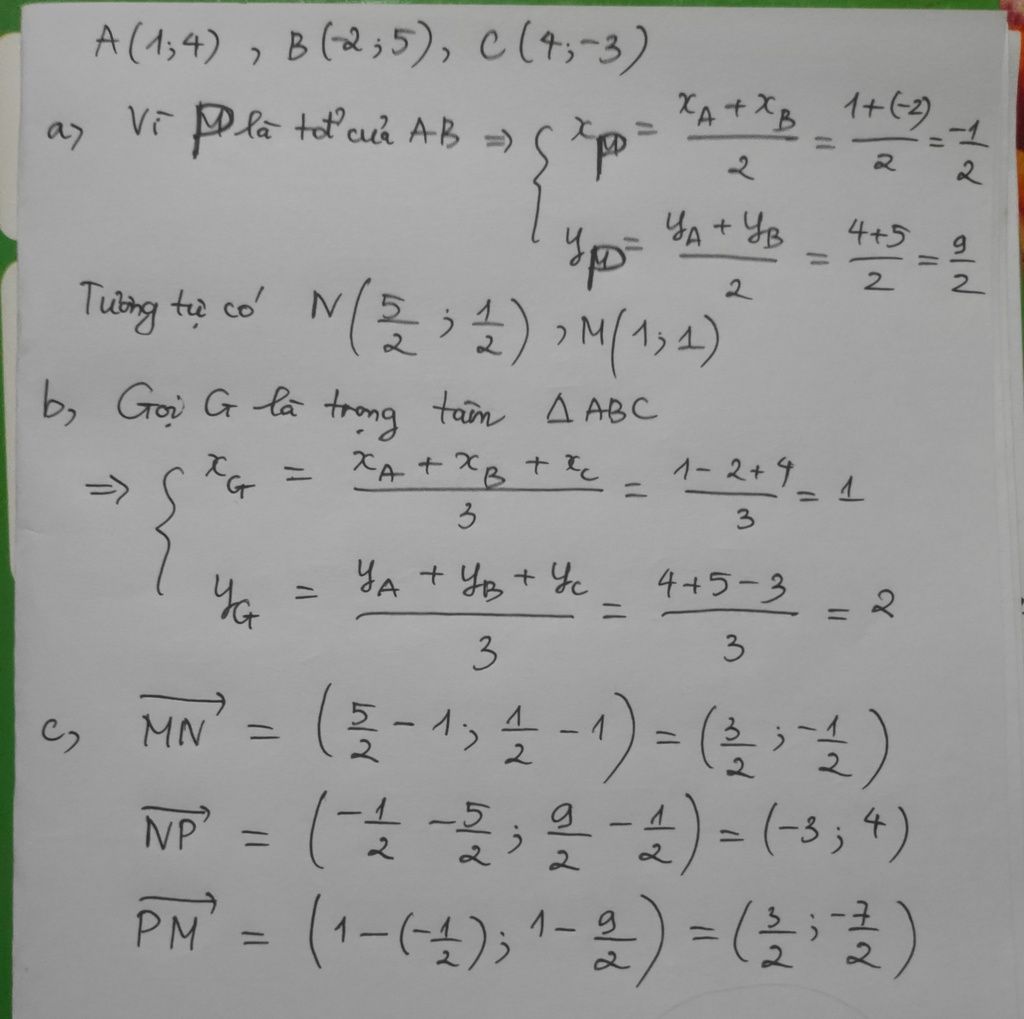 A(1;4) , B(-2;5), C(4;-3)
a, Vì P là tđ² của AB => { x_P = (x_A + x_B)/2 = (1+(-2))/2 = -1/2
y_P = (y_A + y_B)/2 = (4+5)/2 = 9/2
Tương tự có N(5/2 ; 1/2) , M(1;1)
b, Gọi G là trọng tâm Δ ABC
=> { x_G = (x_A + x_B + x_C)/3 = (1-2+4)/3 = 1
y_G = (y_A + y_B + y_C)/3 = (4+5-3)/3 = 2
c, \overrightarrow{MN} = (5/2 - 1; 1/2 - 1) = (3/2 ; -1/2)
\overrightarrow{NP} = (-1/2 - 5/2 ; 9/2 - 1/2) = (-3; 4)
\overrightarrow{PM} = (1-(-1/2); 1 - 9/2) = (3/2 ; -7/2)